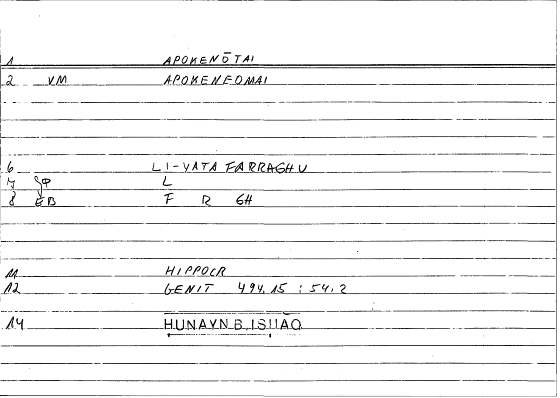 1 APOKENŌTAI
2 VM APOKENEOMAI
6 LI-YATAFARRAGHU
7 SP L
8 EB F R GH
11 HIPPOCR
12 GENIT 494.15 : 54.2
14 HUNAYN B. ISḤĀQ